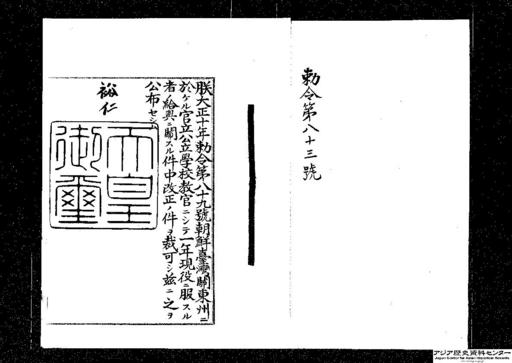 勅令第八十三號
朕大正十年勅令第八十九號朝鮮臺灣關東州ニ
於ケル官立公立學校敎官ニシテ一年現役ニ服スル
者ノ給與ニ關スル件中改正ノ件ヲ裁可シ茲ニ之ヲ
公布セシム
裕仁
天皇御璽
アジア歴史資料センター
Japan Center for Asian Historical Records